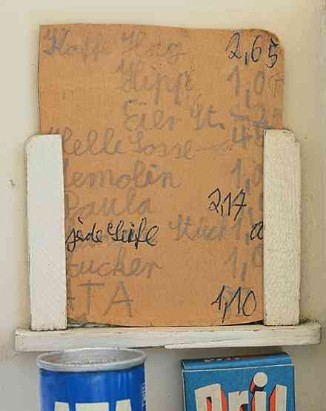 Kaffe Hag 2,65
Hipp 1,0
Eier St.
Helle Sosse
Semolin 1,0
Paula 2,14
jede Seife Stück 1,00
Zucker 1,0
ATA 1,10
ATA
Pril